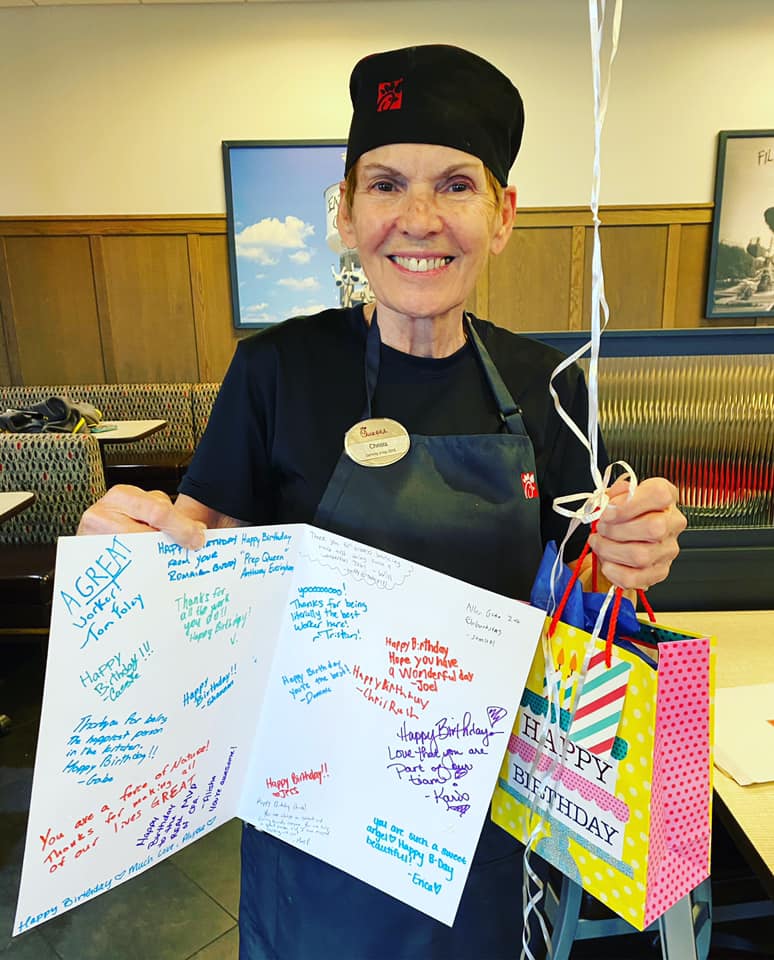 FIL
Chick-fil-A
Christa
A GREAT
worker!
Tom Foley
HAPPY BIRTHDAY
FROM YOUR
ROMANIAN BUDDY
Happy Birthday
"Prep Queen"
Thanks for
all the work
you do!!
Happy Birthday!
V.
Happy
Birthday!!!
Happy
Birthday!!
Thank you for being
the happiest person
in the kitchen.
Happy Birthday!!
-Gabe
You are a force of Nature!
Thanks for making all
of our lives GREAT
Happy
Birthday
to the
REAL MVP
of CFA
you're awesome!
Happy Birthday ♡ Much Love,
Thank you for
yoooooooo!
Thanks for being
literally the best
worker here!
~Tristan!
Happy Birthday
you're the best!
Alles Gute zum
Geburtstag
Happy Birthday
Hope you have
a wonderful day
-Joel
Happy Birthday
-Chris Rush
Happy Birthday
Love that you are
Part of our
team
-Karis
Happy Birthday!!
-Jess
you are such a sweet
angel♡ Happy B-Day
beautiful!!
-Erica♡
HAPPY
BIRTHDAY